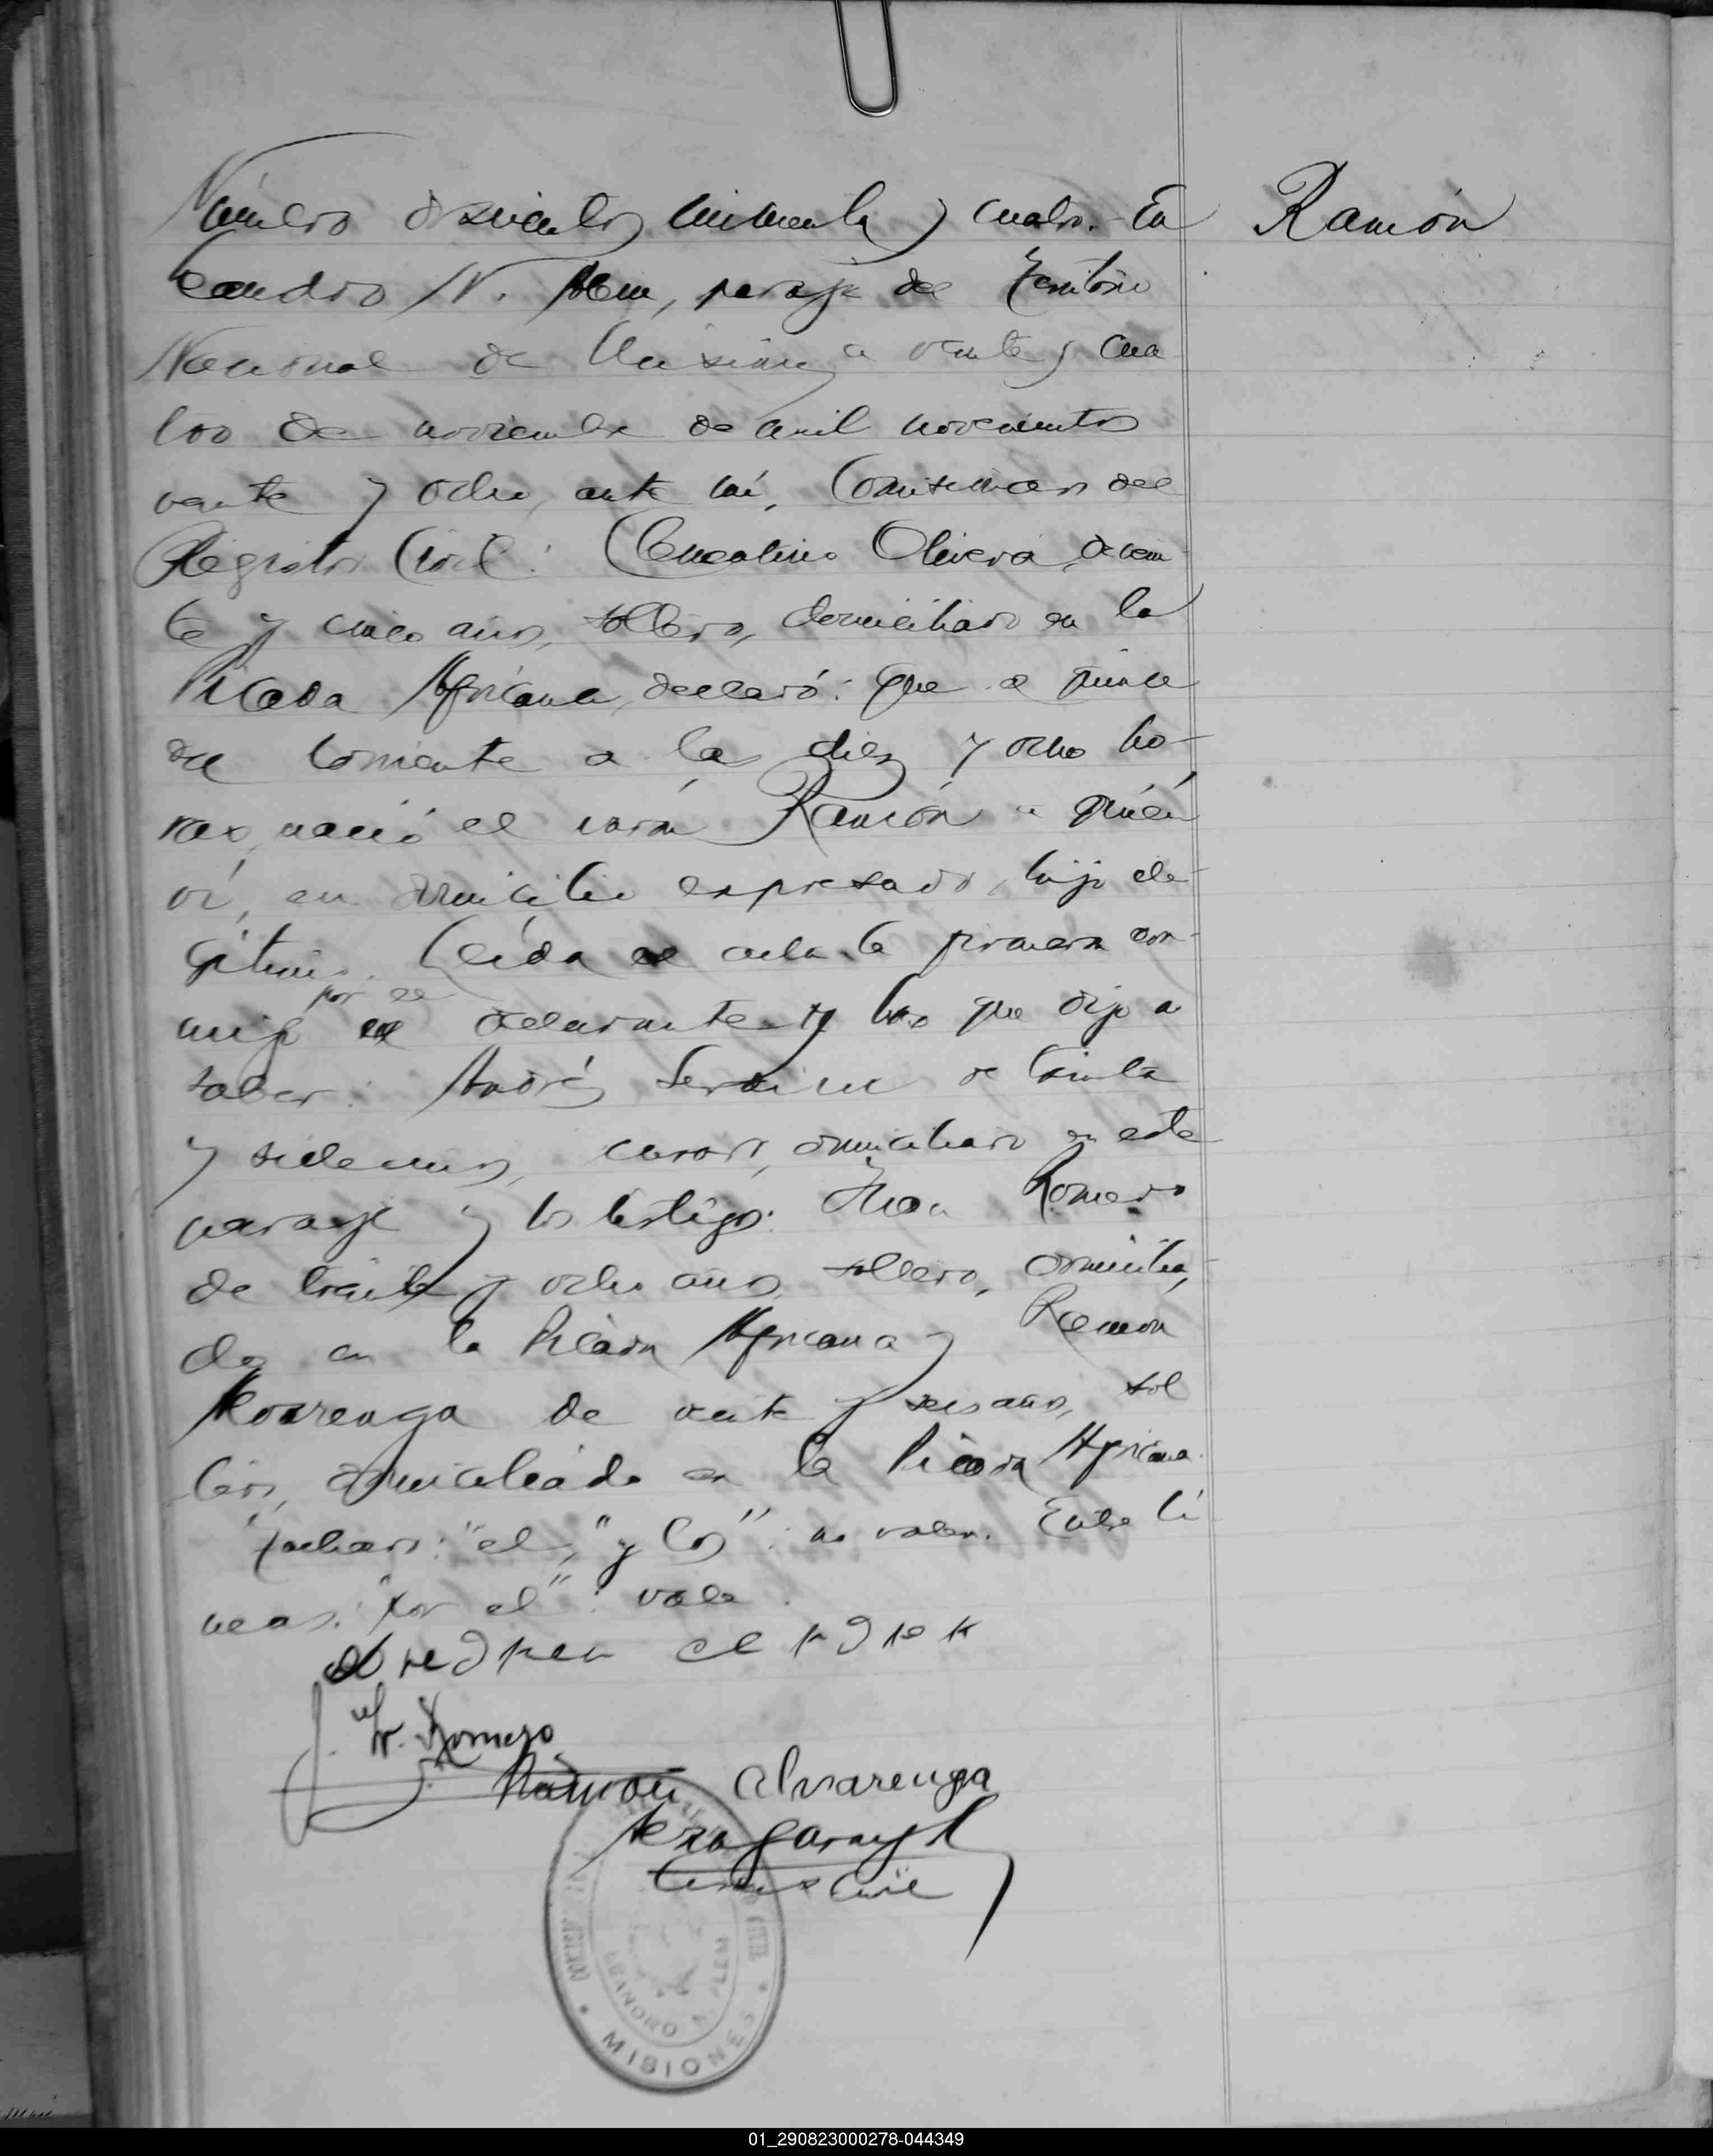 Número doscientos cincuenta y cuatro.- En
Ramón
Leandro N. Alem, paraje del Territorio
Nacional de Misiones, a veinte y cua-
tro de noviembre de mil novecientos
veinte y ocho, ante mí, Comisario del
Registro Civil: Clementino Olivera, de vein
te y cinco años, soltero, domiciliado en la
Picada Africana, declaró: Que el quince
del corriente a las diez y ocho ho-
ras, nació el varón Ramón a quién
ví, en domicilio expresado, hijo ile-
gítimo. Leída el acta la firmaron con-
por el
migo el declarante y los que dijo a
saber: Andrés de treinta
y siete años, casado, domiciliado en este
paraje y los testigos: Juan Romero
de treinta y ocho años, soltero, domicilia-
do en la Picada Africana y Ramón
Alvarenga de veinte y seis años, sol
tero, domiciliado en la Picada Africana.
Tachado: "el", "y los": no valen. Entre lí
neas: "por el": vale.
J. W. Romero
Ramón Alvarenga
LEANDRO N. ALEM
MISIONES
01_290823000278-044349